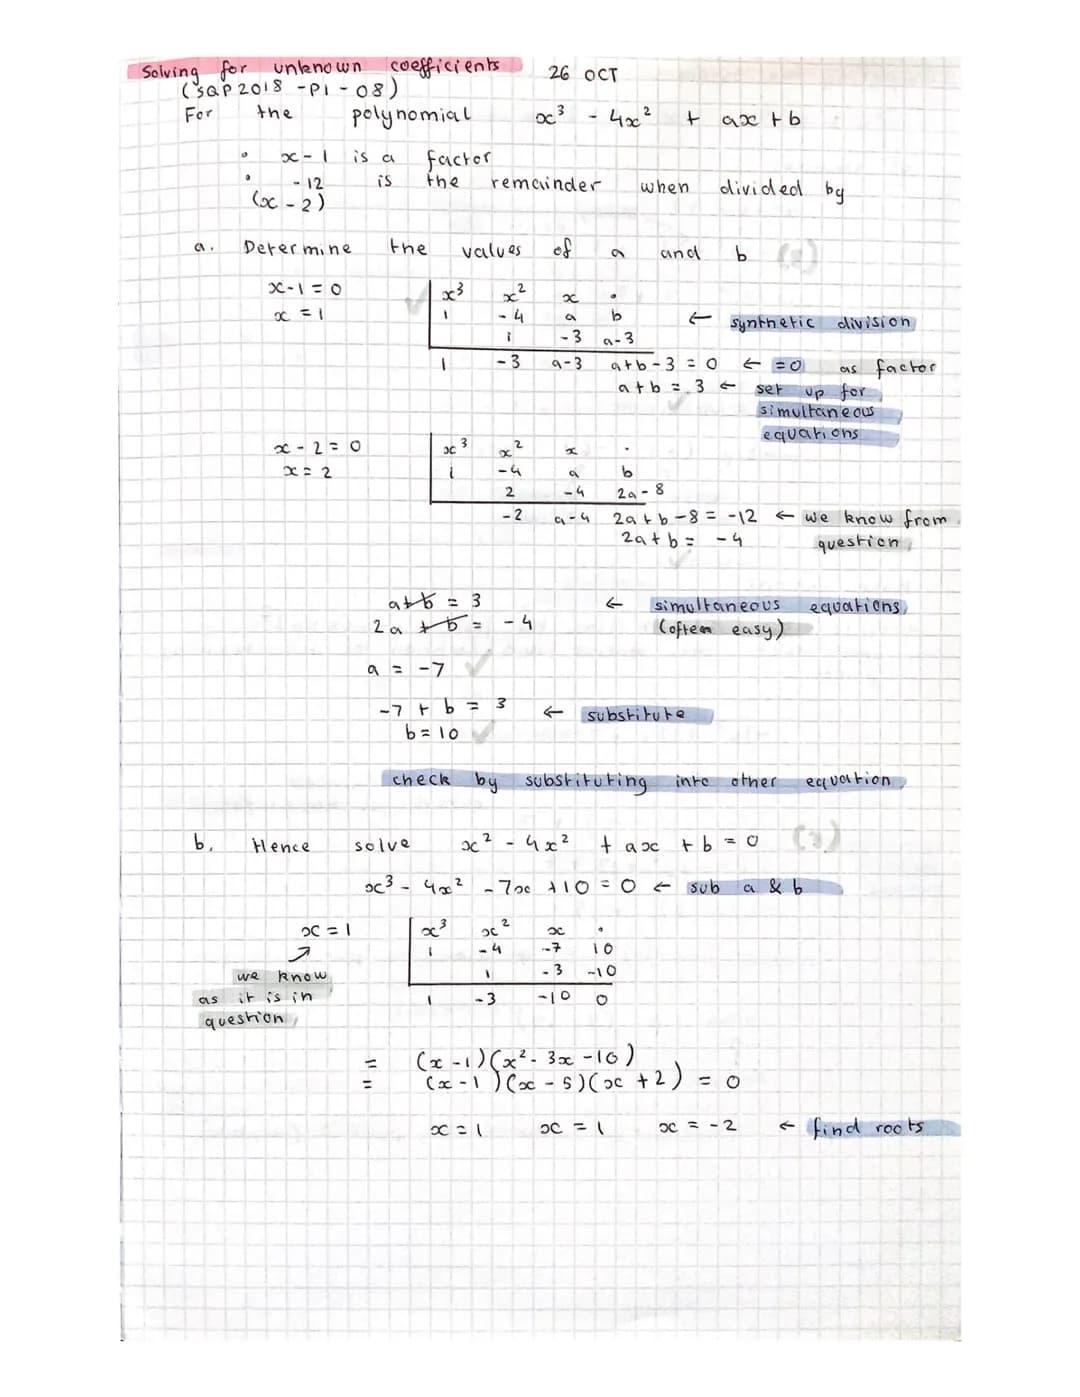 Solving for unknown coefficients 26 OCT
(SQP 2018 - P1 - 08)
For the polynomial x³ - 4x² + ax + b
• x - 1 is a factor
• -12 is the remainder when divided by
(x - 2)
a. Determine the values of a and b
x - 1 = 0 x³ x² x •
x = 1 1 -4 a b ← synthetic division
1 -3 a-3
1 -3 a-3 a+b-3 = 0 ← =0 as factor
a+b = 3 ← set up for
simultaneous
equations
x - 2 = 0 x³ x² x •
x = 2 1 -4 a b
2 -4 2a-8
-2 a-4 2a+b-8 = -12 ← we know from
2a+b = -4 question
a+b = 3 ← simultaneous equations
2a+b = -4 (often easy)
a = -7 ✓
-7 + b = 3 ← substitute
b = 10 ✓
check by substituting into other equation
b. Hence solve x² - 4x² + ax + b = 0
x³ - 4x² - 7x + 10 = 0 ← sub a & b
x = 1 x³ x² x •
1 -4 -7 10
we know 1 -3 -10
as it is in 1 -3 -10 0
question
= (x-1)(x² - 3x - 10)
= (x-1)(x-5)(x+2) = 0
x = 1 x = 1 x = -2 ← find roots